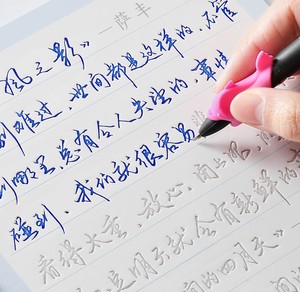 风之影》—萨丰
别难过，世间都是这样的，不管
到哪里总有令人失望的事情
碰到，我们就很容易
看得太重，放心，闭上眼
就会有新鲜的
间的四月天》—